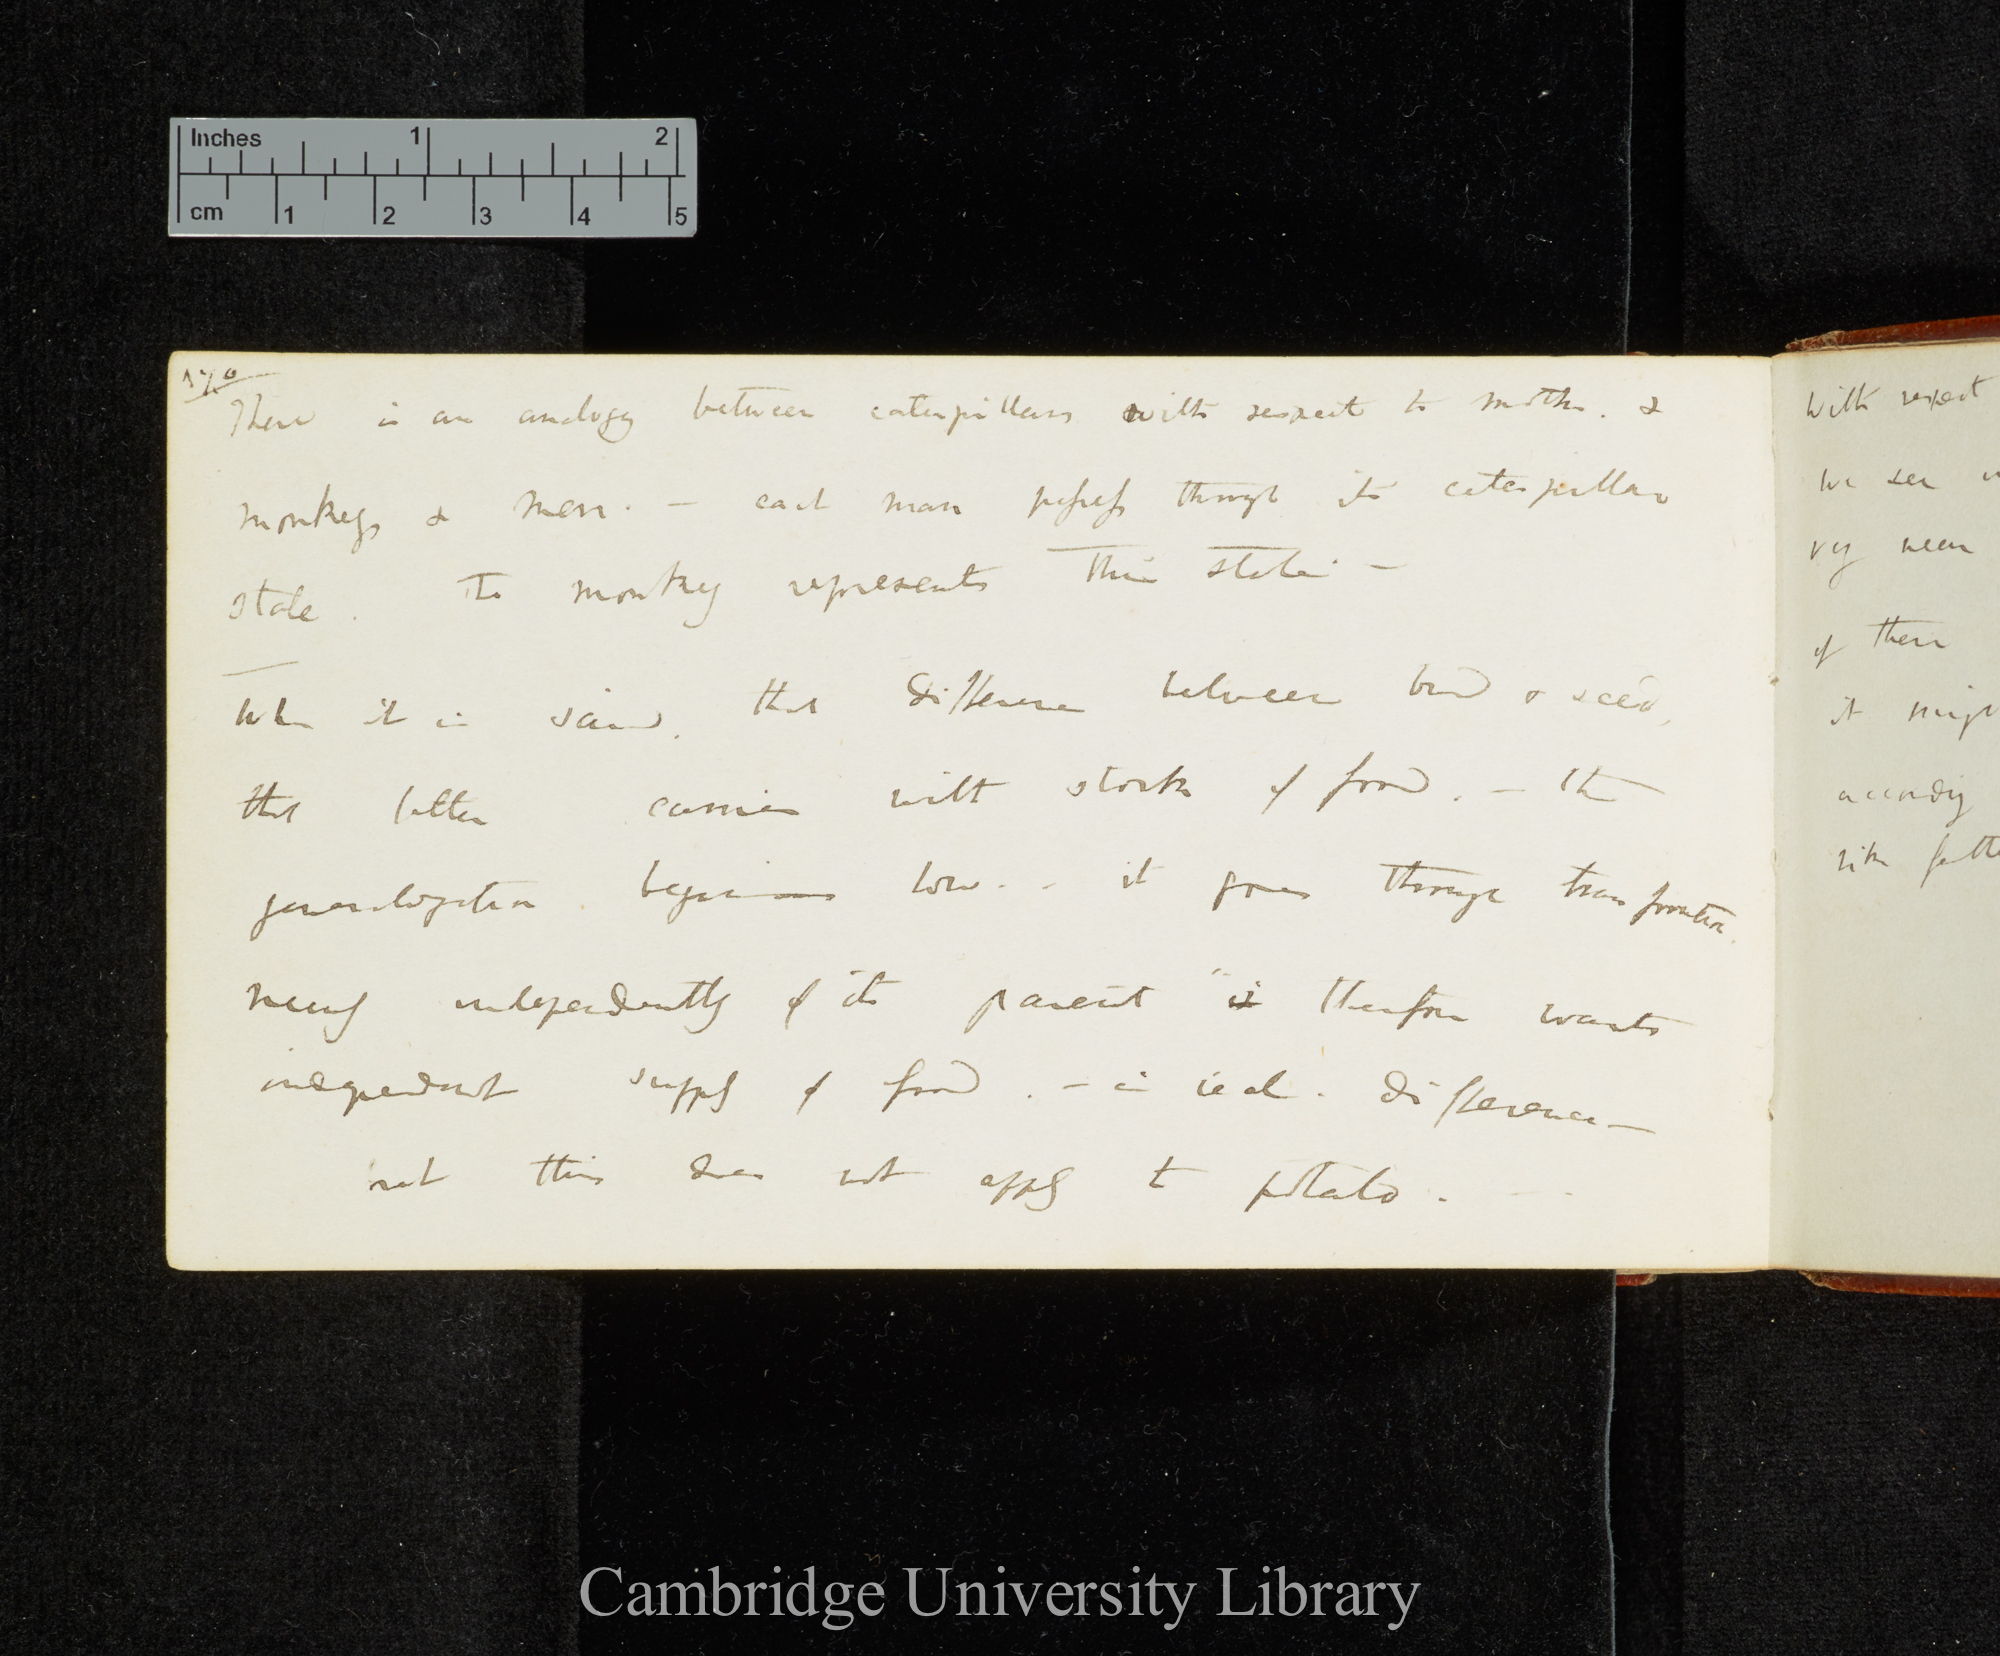 Inches 1 2
cm 1 2 3 4 5
170
There is an analogy between caterpillars with respect to moths. &
monkeys & men. — each man passes through its caterpillar
state. The monkey represents this state. —
When it is said, that difference between bud & seed,
that latter carries with stock of food. — the
generalization begins low. - it goes through transformation
independently of its parent is therefore wants
independent supply of food. — is real. difference —
not this does not apply to potato. —
With respect
we see
very near
of them
it might
according
with
Cambridge University Library